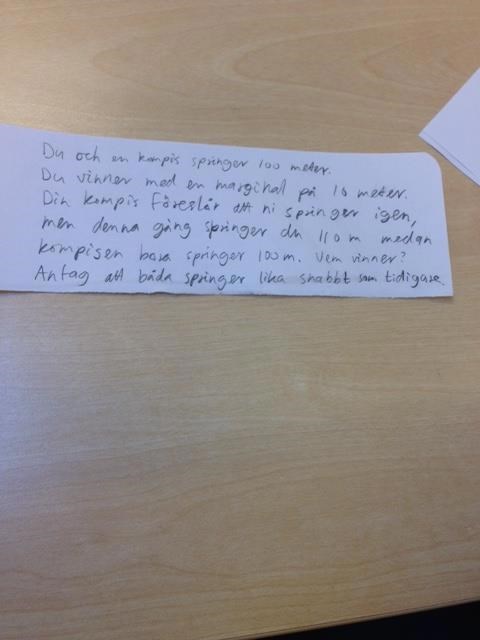 Du och en kompis springer 100 meter.
Du vinner med en marginal på 10 meter.
Din kompis föreslår att ni springer igen,
men denna gång springer du 110 m medan
kompisen bara springer 100 m. Vem vinner?
Antag att båda springer lika snabbt som tidigare.